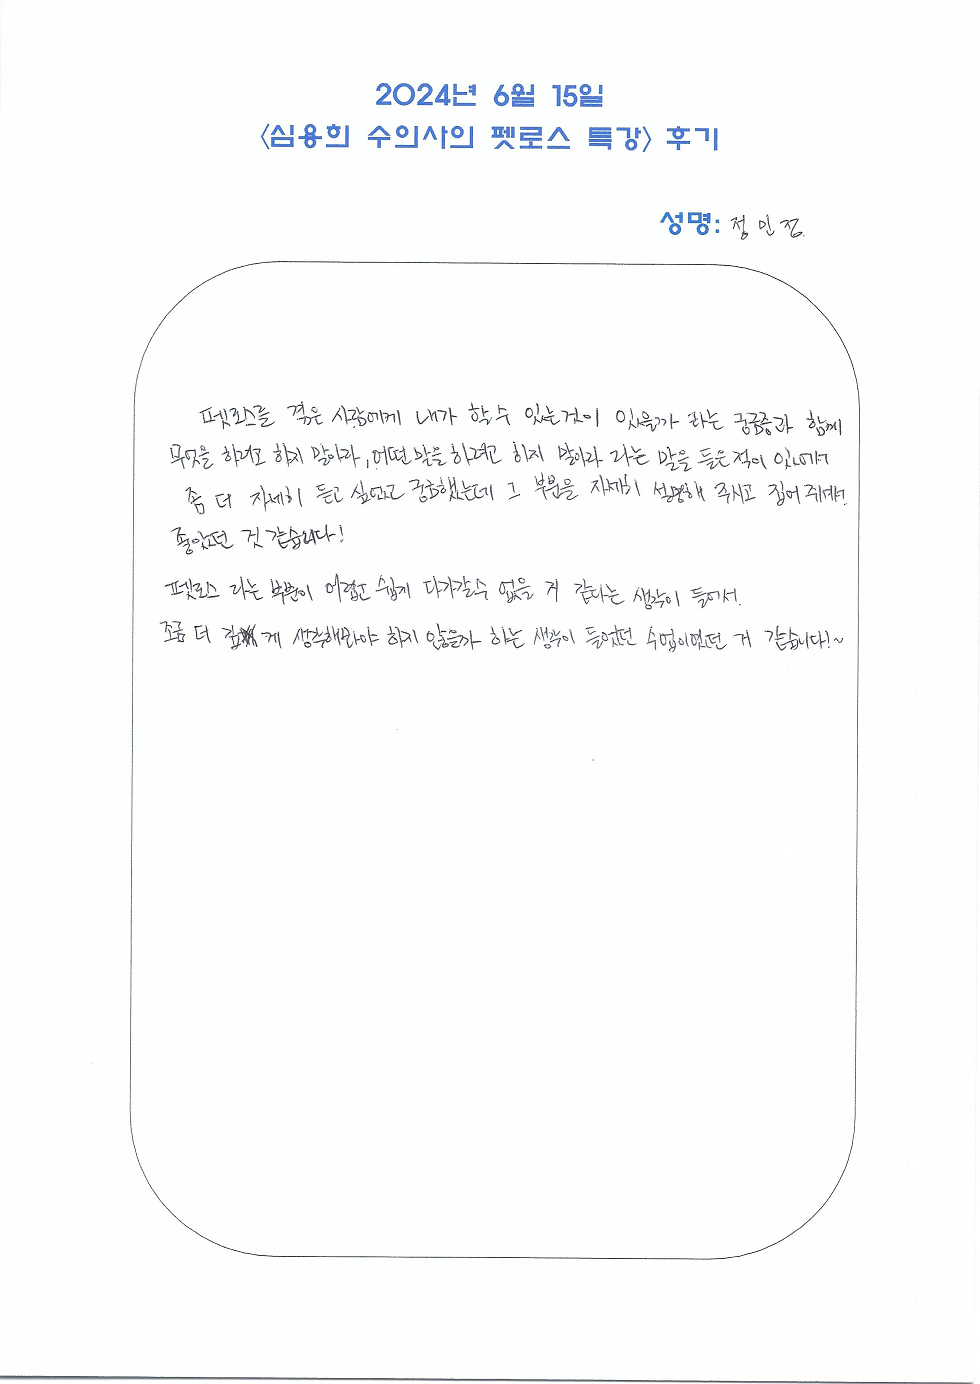 2024년 6월 15일
<심용희 수의사의 펫로스 특강> 후기
성명: 정민진
펫로스를 겪은 사람에게 내가 할 수 있는것이 있을까 라는 궁금증과 함께
무엇을 하려고 하지 말아라, 어떤 말을 하려고 하지 말아라 라는 말을 들은적이 있어서
좀 더 자세히 듣고 싶었고 궁금했는데 그 부분을 자세히 설명해 주시고 짚어 주셔서
좋았던 것 같습니다!
펫로스 라는 부분이 어렵고 쉽게 다가갈수 없을 거 같다는 생각이 들어서
조금 더 깊게 생각해봐야 하지 않을까 하는 생각이 들었던 수업이였던 거 같습니다!~